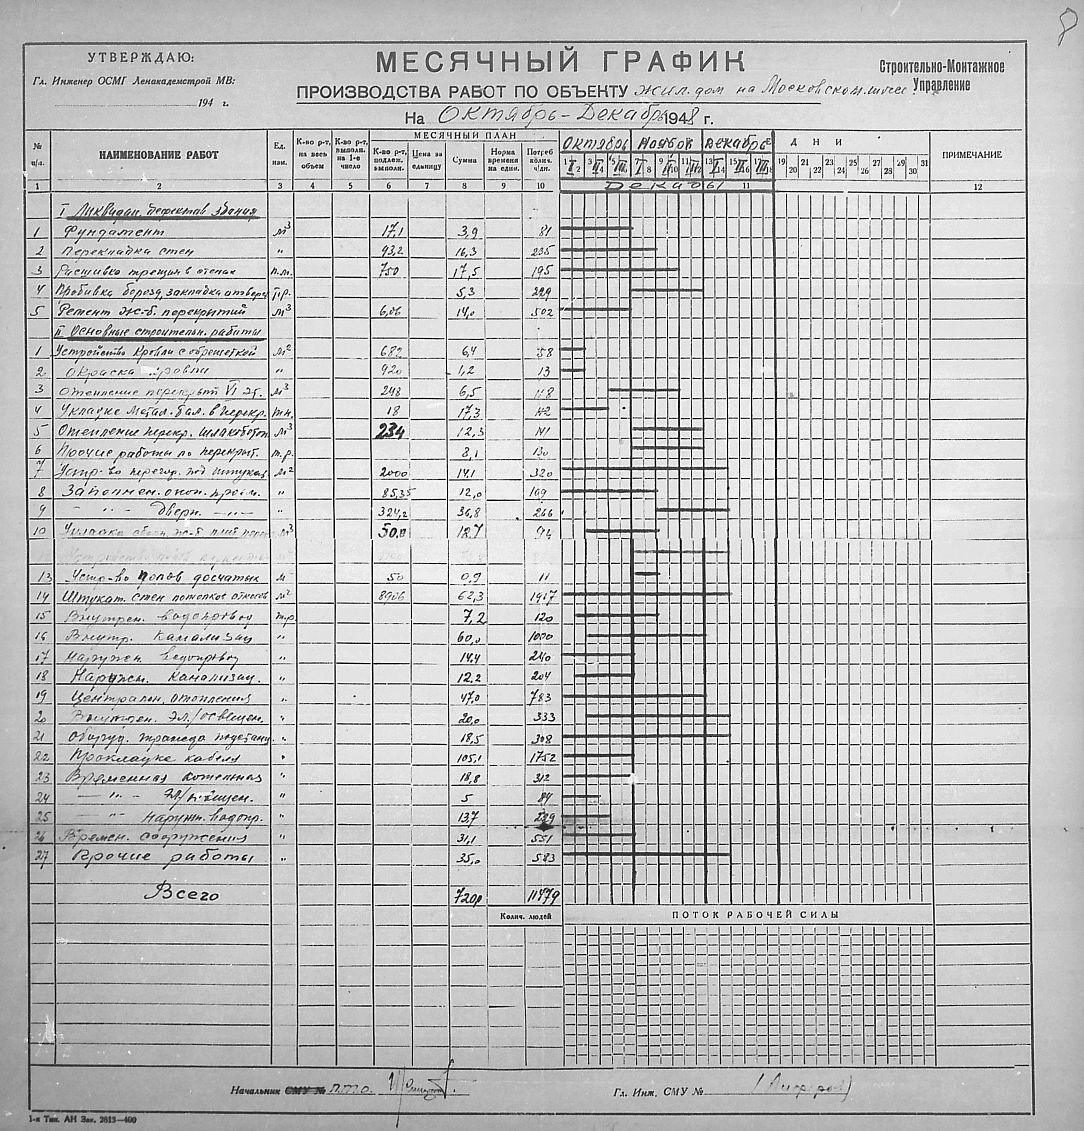 УТВЕРЖДАЮ:
Гл. Инженер ОСМГ Ленакадемстрой МВ:
194 г.
МЕСЯЧНЫЙ ГРАФИК
ПРОИЗВОДСТВА РАБОТ ПО ОБЪЕКТУ жил. дом на Московском шоссе
На Октябрь-Декабрь 1948 г.
Строительно-Монтажное
Управление
№ п/п. НАИМЕНОВАНИЕ РАБОТ Ед. изм. К-во р-т, на весь объем К-во р-т, выполн. на 1-е число МЕСЯЧНЫЙ ПЛАН К-во р-т, подлеж. выполн. Цена за единицу Сумма Норма времени на един. Потреб колич. ч/дн. Октябрь Ноябрь Декабрь ДНИ ПРИМЕЧАНИЕ
19 20 21 22 23 24 25 26 27 28 29 30 31
1 2 3 4 5 6 7 8 9 10 Декады 11 12
I Ликвидац. дефектов здания
1 Фундамент м³ 17,1 3,9 81
2 Перекладка стен " 93,2 16,3 235
3 Расшивка трещин в стенах п.м. 750 17,5 195
4 Пробивка борозд, закладка отверст. т.р. 5,3 229
5 Ремонт ж-б. перекрытий м³ 6,06 14,0 502
II Основные строительн. работы
1 Устройство кровли с обрешеткой м² 682 6,4 58
2 Окраска кровли " 920 1,2 13
3 Отепление перекрыт VI эт. м³ 248 6,5 118
4 Укладка метал. бал. в перекр. тн. 18 17,3
5 Отепление перекр. шлакобетон. м³ 234 12,3
6 Прочие работы по перекрыт. т.р. 8,1 130
7 Устр-во перегор. под штукат. м² 2000 14,1 320
8 Заполнен. окон. проем. " 85,35 12,0 109
9 — " — дверн. — " — " 324,2 36,8 266
10 м³ 50,0 12,7 94
13 Устр-во полов досчатых м 50 0,9 11
14 Штукат. стен потолков откосов м² 8906 62,3 1917
15 Внутрен. водопровод т.р 7,2 120
16 Внутр. канализац " 60,0 1000
17 Наружен водопровод " 14,4 240
18 Наружн. канализац. " 12,2 204
19 Централн. отопления " 47,0 783
20 Внутрен. эл/освещен. " 20,0 333
21 Оборуд. " 18,5 308
22 Прокладка кабеля " 105,1 1752
23 Временная котельная " 18,8 312
24 — " — " 5 84
25 — " Наружн. водопр. " 13,7 229
26 Времен. сооружения " 31,1 551
27 Прочие работы " 35,0 583
Всего 720,1 11479
Колич. людей ПОТОК РАБОЧЕЙ СИЛЫ
Начальник СМУ № П.Т.О. Гл. Инж. СМУ №
1-я Тип. АН Зак. 2613—400